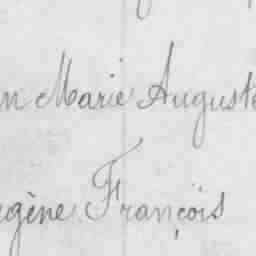 n Marie Auguste
gène François